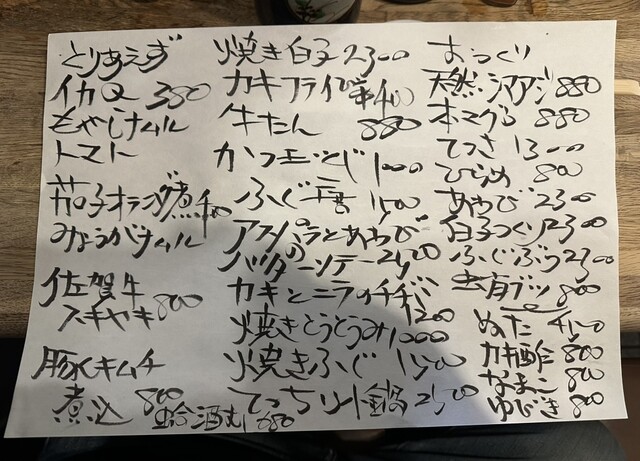 とりあえず
イカQ 380
もやしナムル
トマト
茄子オランダ煮
みょうがナムル
佐賀牛
スキヤキ 800
豚ヒキムチ
煮込 800
蛤酒むし 880
焼き白子 2300
カキフライ
牛たん 880
かつ玉とじ 1000
ふぐ唐 1500
アスパラとあわび
のバターソテー
カキとニラのチヂミ
1200
焼きとうとうみ 1000
焼きふぐ 1500
てっちり小鍋
おつくり
天然シマアジ 880
本マグロ 880
てっさ 1300
ひらめ 800
あわび 2300
白子つくり 2300
ふぐぶつ 2300
ブツ 800
ぬた
カキ酢 800
なまこ 800
ゆびき 800